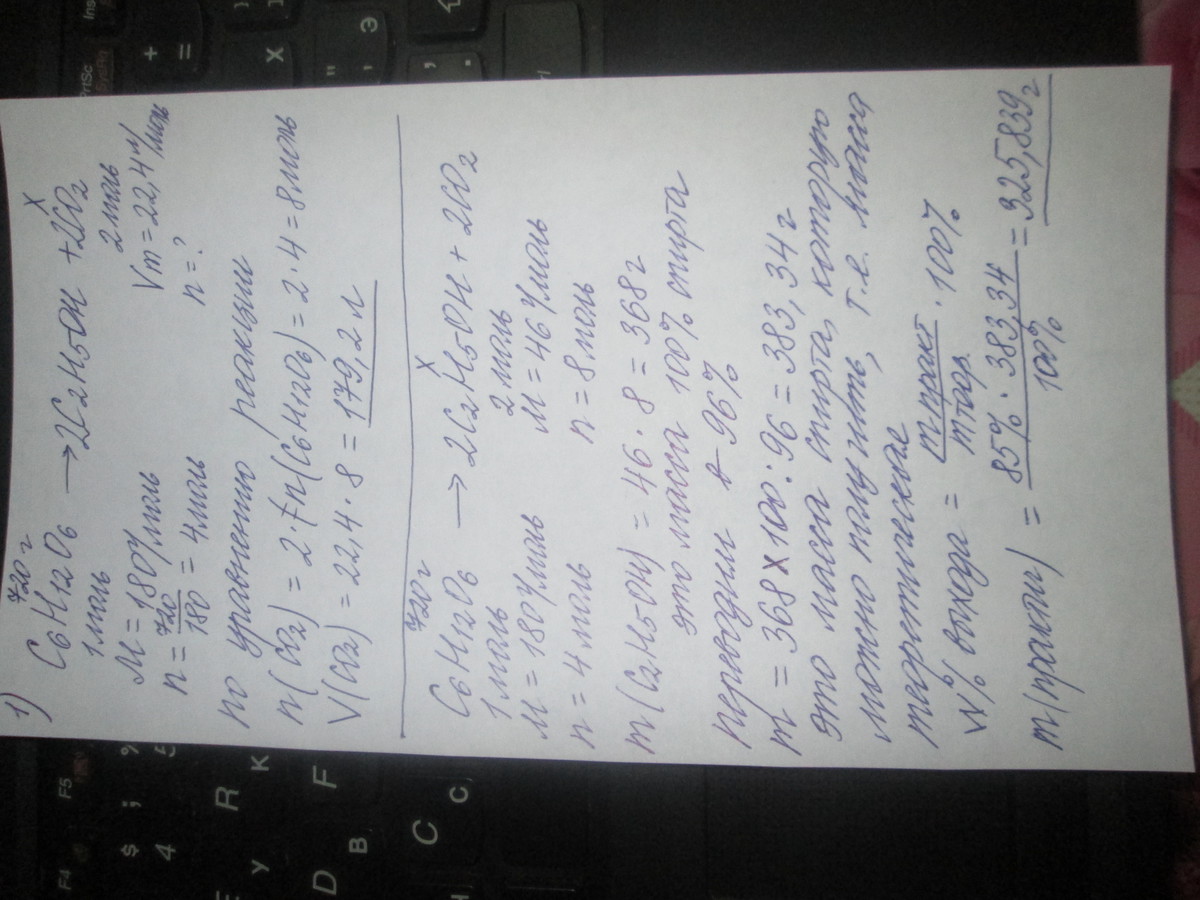 1)
720 г x
C6H12O6 → 2C2H5OH + 2CO2
1 моль 2 моль
M = 180 г/моль Vm = 22,4 л/моль
n = 720/180 = 4 моль n = ?
по уравнению реакции
n(CO2) = 2·n(C6H12O6) = 2·4 = 8 моль
V(CO2) = 22,4·8 = 179,2 л
720 г x
C6H12O6 → 2C2H5OH + 2CO2
1 моль 2 моль
M = 180 г/моль M = 46 г/моль
n = 4 моль n = 8 моль
m(C2H5OH) = 46·8 = 368 г
это масса 100% спирта
переводим в 96%
m = 368 x 100 : 96 = 383,34 г
это масса спирта, которую
можно получить, т.е. масса
теоретическая
W% выхода = m практ/m теор · 100%
m(практ) = 85% · 383,34/100% = 325,839 г
F4
F5
$
4
%
;
5
R
К
D
В
F
C
С
У
PrtSc
SysRq
Ins
+
=
Х
Э
"
'
,
.